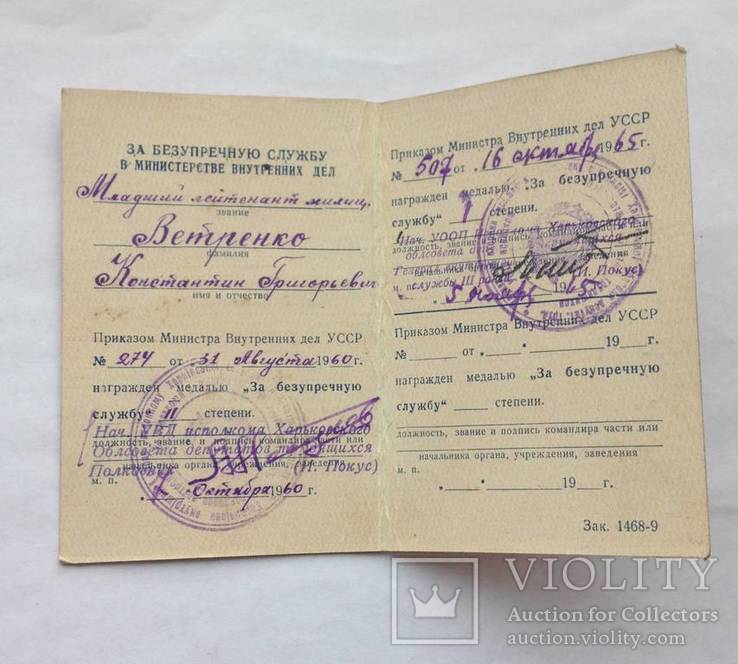 ЗА БЕЗУПРЕЧНУЮ СЛУЖБУ
В МИНИСТЕРСТВЕ ВНУТРЕННИХ ДЕЛ
Младший лейтенант милиц.
звание
Ветренко
фамилия
Константин Григорьевич
имя и отчество
Приказом Министра Внутренних дел УССР
№ 274 от 31 Августа 1960 г.
награжден медалью „За безупречную
службу" II степени.
Нач. УВД исполкома Харьковского
должность, звание, и подпись командира части или
Облсовета депутатов трудящихся
начальника органа, учреждения, заведения
Полковник (И. Покус)
м. п.
Октября 1960 г.
Приказом Министра Внутренних дел УССР
№ 507 от 16 октября 1965 г.
награжден медалью „За безупречную
службу" I степени.
Нач. УООП Харьковского
должность, звание
облсовета
начальника
службы III (И. Покус)
м.
5 ноября 1965 г.
Приказом Министра Внутренних дел УССР
№ от . . 19 г.
награжден медалью „За безупречную
службу" степени.
должность, звание и подпись командира части или
начальника органа, учреждения, заведения
м. п. . . 19 г.
Зак. 1468-9
VIOLITY
Auction for Collectors
auction.violity.com